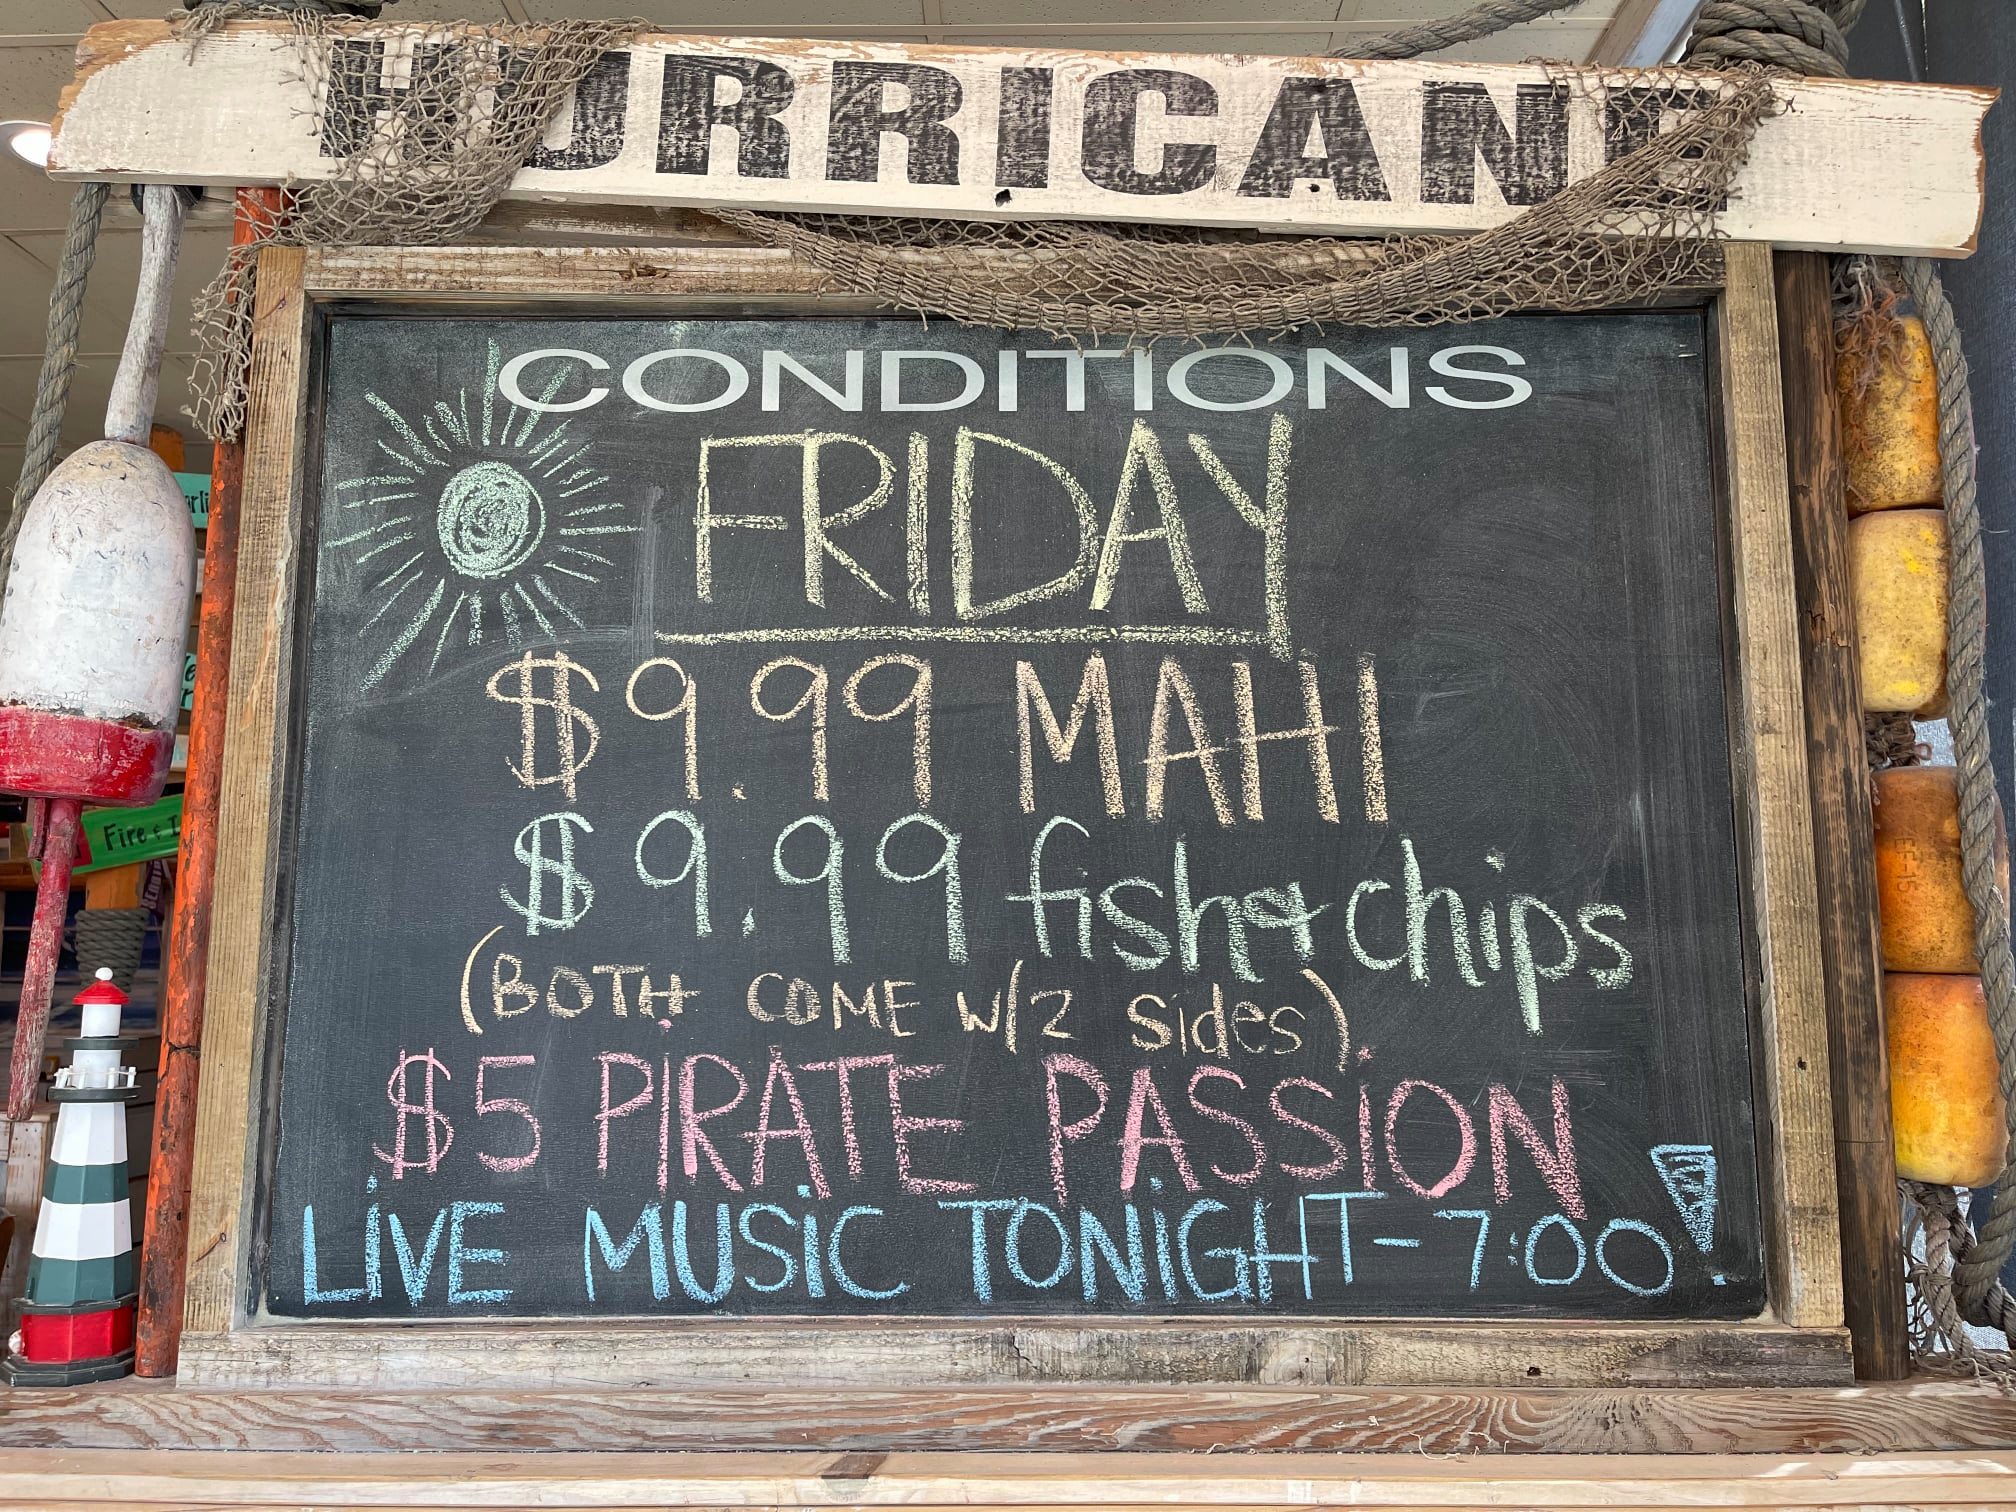 HURRICANE
CONDITIONS
FRIDAY
$9.99 MAHI
$9.99 fish & chips
(BOTH COME W/2 Sides)
$5 PIRATE PASSION
LiVE MUSiC TONiGHT - 7:00!
Fire & I
EF-15